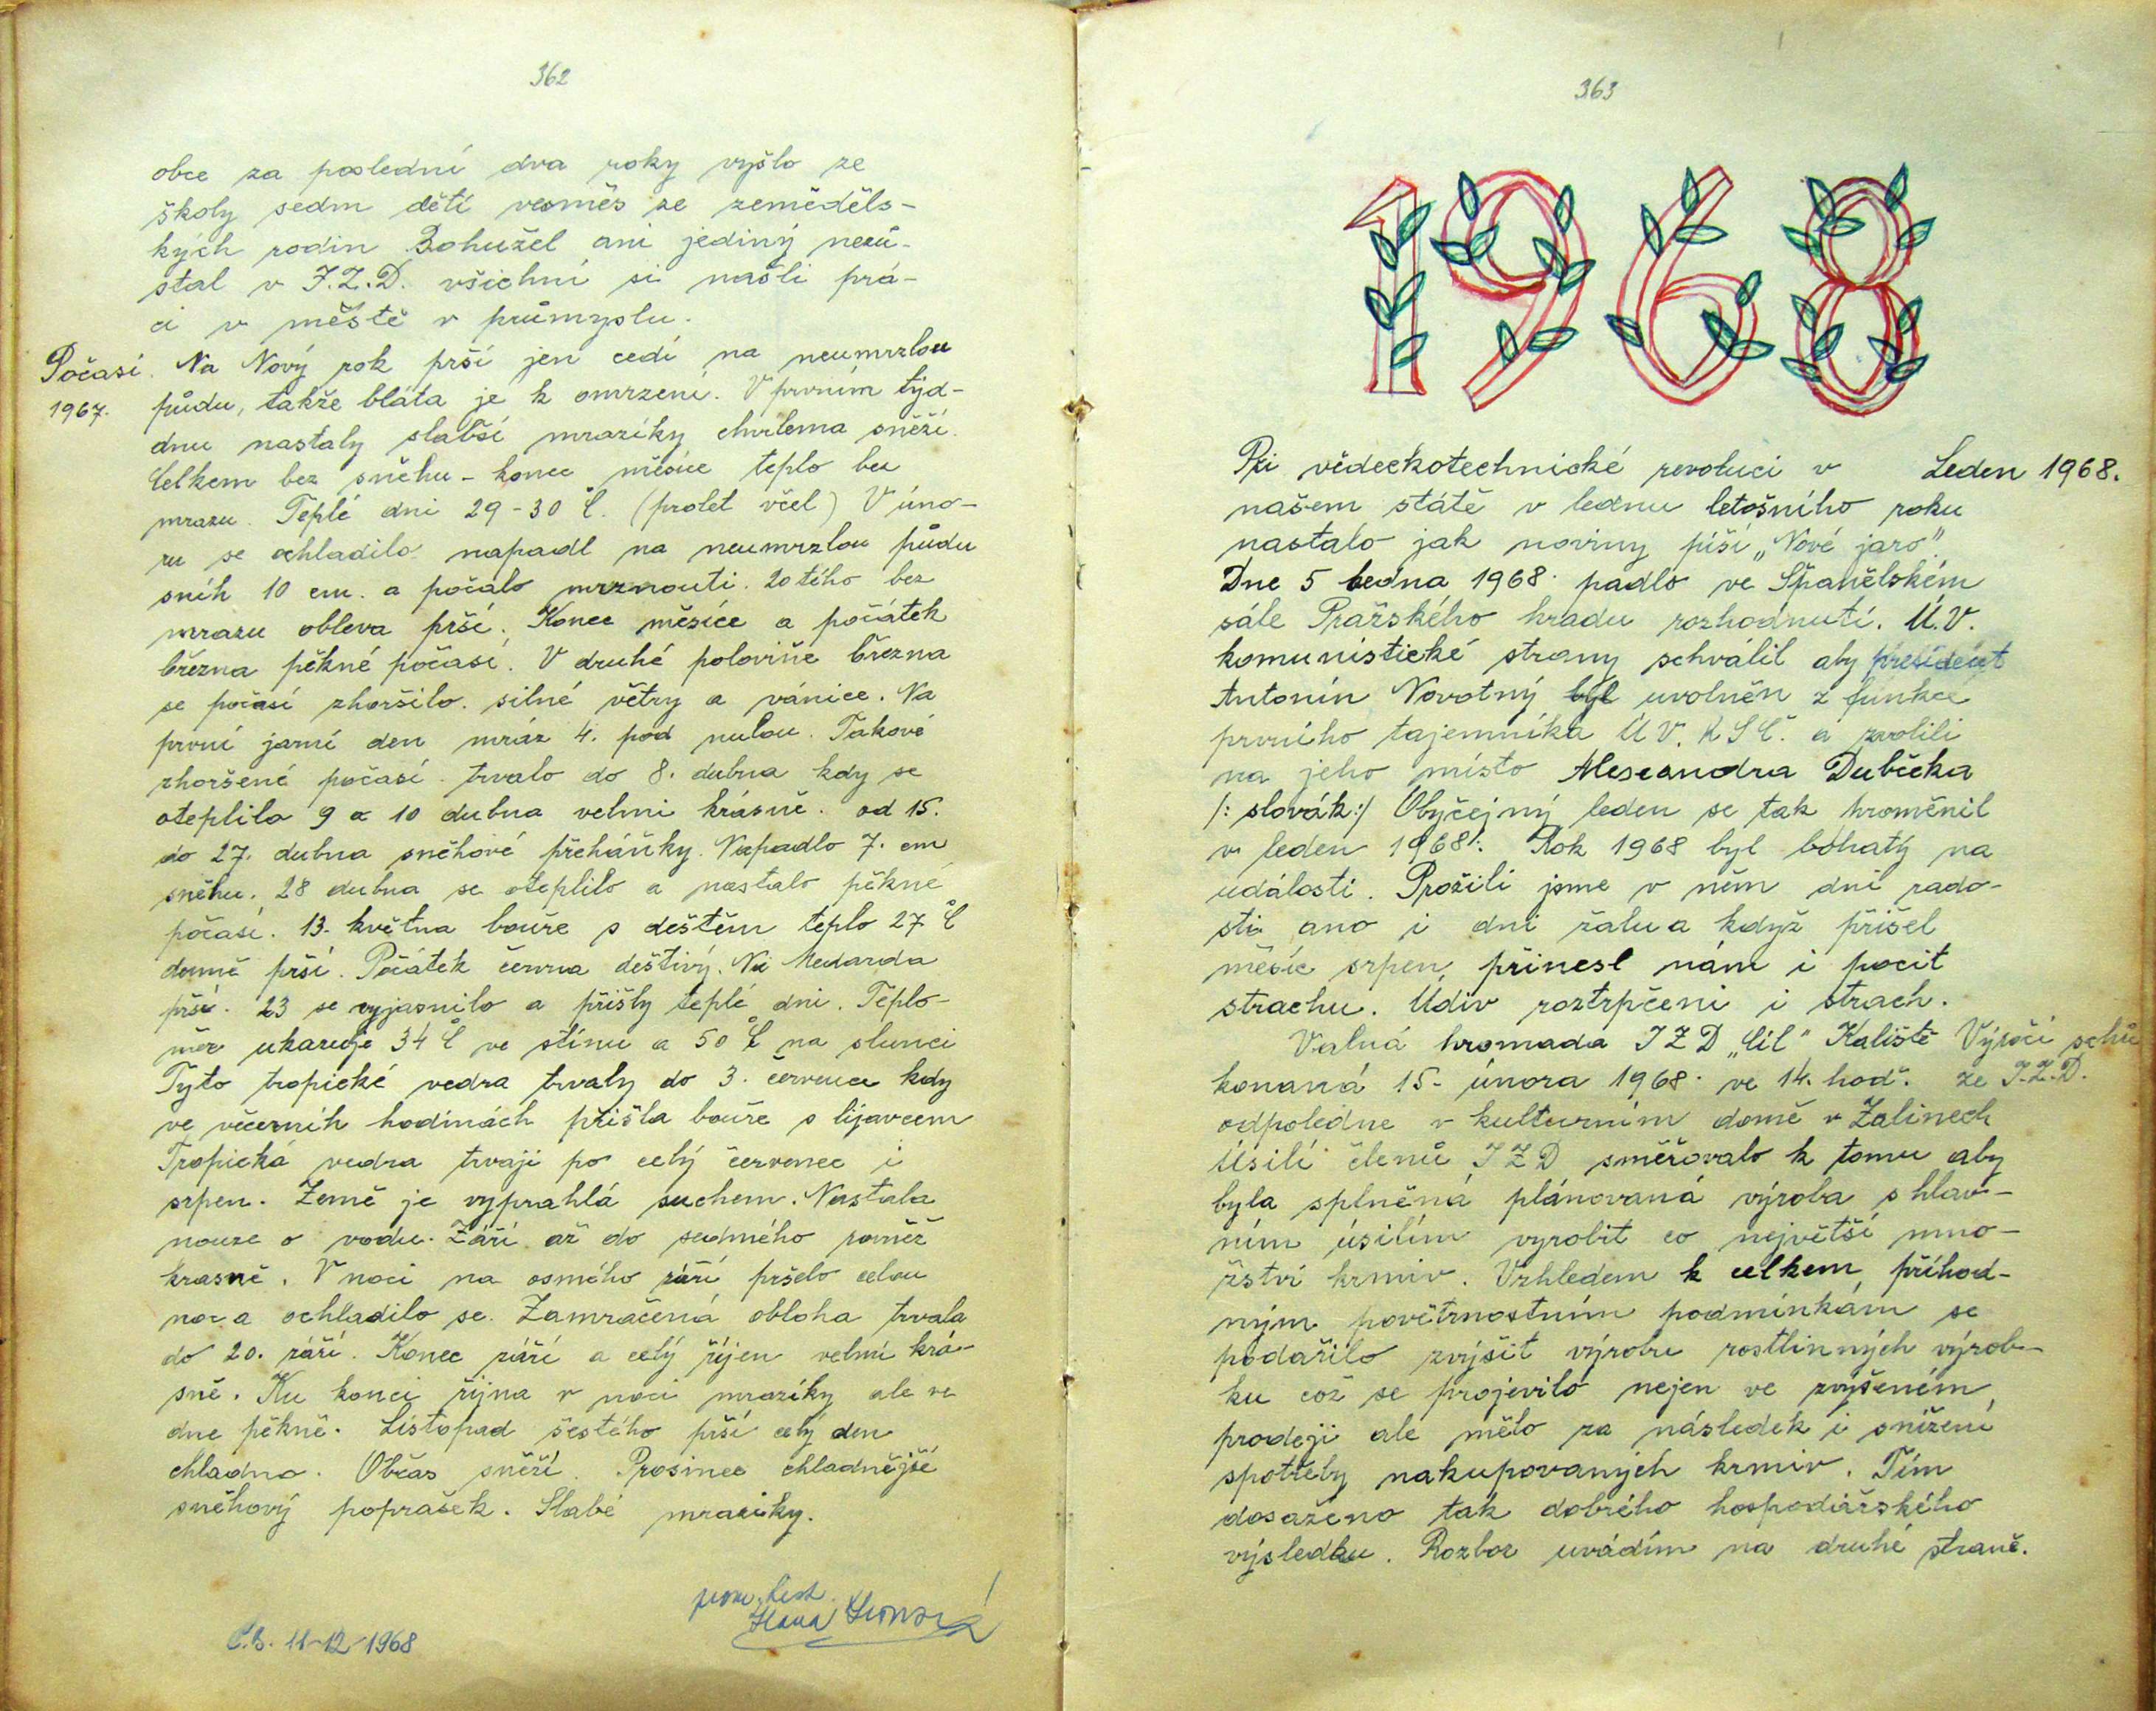 362
obce za poslední dva roky vyšlo ze
školy sedm dětí vesměs ze zeměděls-
kých rodin Bohužel ani jediný nezů-
stal v J.Z.D. všichni si našli prá-
ci v městě v průmyslu.
Počasí
1967.
Na Nový rok prší jen cedí na neumrzlou
půdu, takže bláta je k omrzení. V prvním týd-
dnu nastaly slabší mrazíky chvilema sněží.
Celkem bez sněhu - konec měsíce teplo bez
mrazu. Teplé dni 29-30 °C. (prolet včel) V úno-
ru se ochladilo napadl na neumrzlou půdu
sníh 10 cm. a počalo mrznouti. 20tého bez
mrazu obleva prší. Konec měsíce a počátek
března pěkné počasí. V druhé polovině března
se počasí zhoršilo. silné větry a vánice. Na
první jarní den mráz 4. pod nulou. Takové
zhoršené počasí trvalo do 8. dubna kdy se
oteplilo 9 a 10 dubna velmi krásně. od 15.
do 27. dubna sněhové přeháňky. Napadlo 7. cm
sněhu. 28 dubna se oteplilo a nastalo pěkné
počasí. 13. května bouře s deštěm teplo 27 °C
denně prší. Počátek června deštivý. Na Medarda
prší. 23 se vyjasnilo a přišly teplé dni. Teplo-
měr ukazuje 34 °C ve stínu a 50 °C na slunci
Tyto tropické vedra trvaly do 3. července kdy
ve večerních hodinách přišla bouře s lijavcem
Tropická vedra trvají po celý červenec i
srpen. Země je vyprahlá suchem. Nastala
nouze o vodu. Září až do sedmého rovněž
krasně. V noci na osmého září pršelo celou
noc a ochladilo se. Zamračená obloha trvala
do 20. září. Konec září a celý říjen velmi krá-
sně. Ku konci října v noci mrazíky ale ve
dne pěkně. Listopad šestého prší celý den
chladno. Občas sněží. Prosinec chladnější
sněhový poprašek. Slabé mrazíky.
Č.B. 11-12-1968
Hana
363
1968
Leden 1968.
Při vědeckotechnické revoluci v
našem státě v lednu letošního roku
nastalo jak noviny píší „Nové jaro".
Dne 5 ledna 1968 padlo ve Španělském
sále Pražského hradu rozhodnutí. Ú.V.
komunistické strany schválil aby president
Antonín Novotný byl uvolněn z funkce
prvního tajemníka ÚV. KSČ. a zvolili
na jeho místo Alexandra Dubčeka
/: slovák:/ Obyčejný leden se tak proměnil
v leden 1968! Rok 1968 byl bohatý na
události. Prožili jsme v něm dni rado-
sti ano i dni žalu a když přišel
měsíc srpen, přinesl nám i pocit
strachu. Údiv roztrpčení i strach.
Výročí schů
ze J.Z.D.
Valná hromada JZD „Cíl" Kaliště
konaná 15. února 1968 ve 14. hod.
odpoledne v kulturním domě v Zalinech
Úsilí členů JZD směřovalo k tomu aby
byla splněná plánovaná výroba s hlav-
ním úsilím vyrobit co největší mno-
žství krmiv. Vzhledem k celkem příhod-
ným povětrnostním podmínkám se
podařilo zvýšit výrobu rostlinných výrob-
ku což se projevilo nejen ve zvýšeném
prodeji ale mělo za následek i snížení
spotřeby nakupovaných krmiv. Tím
dosaženo tak dobrého hospodářského
výsledku. Rozbor uvádím na druhé straně.